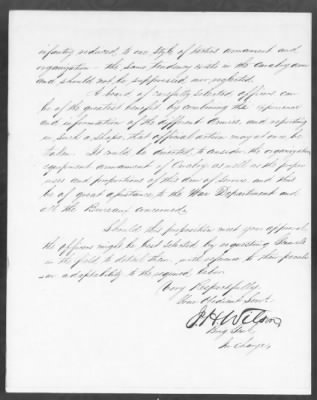 infantry reduced to one style of better armament and
organization - the same tendency exists in the Cavalry arm
and should not be suppressed, nor neglected.
A board of carefully selected officers can
be of the greatest benefit by combining the experience
and information of the different Armies, and reporting
in such a shape, that official action may at once be
taken. It could be directed, to consider the organization
equipment armament of Cavalry as well as the proper
uses and proportions of this arm of service and thus
be of great assistance to the War Department and
all the Bureaus concerned.
Should this proposition meet your approval
the officers might be best selected by requesting Generals
in the field to detail them, with reference to their peculi-
ar adaptability to the required labor.
Very Respectfully
Your Obedient Servt
J. H. Wilson
Brig Genl
In Charge